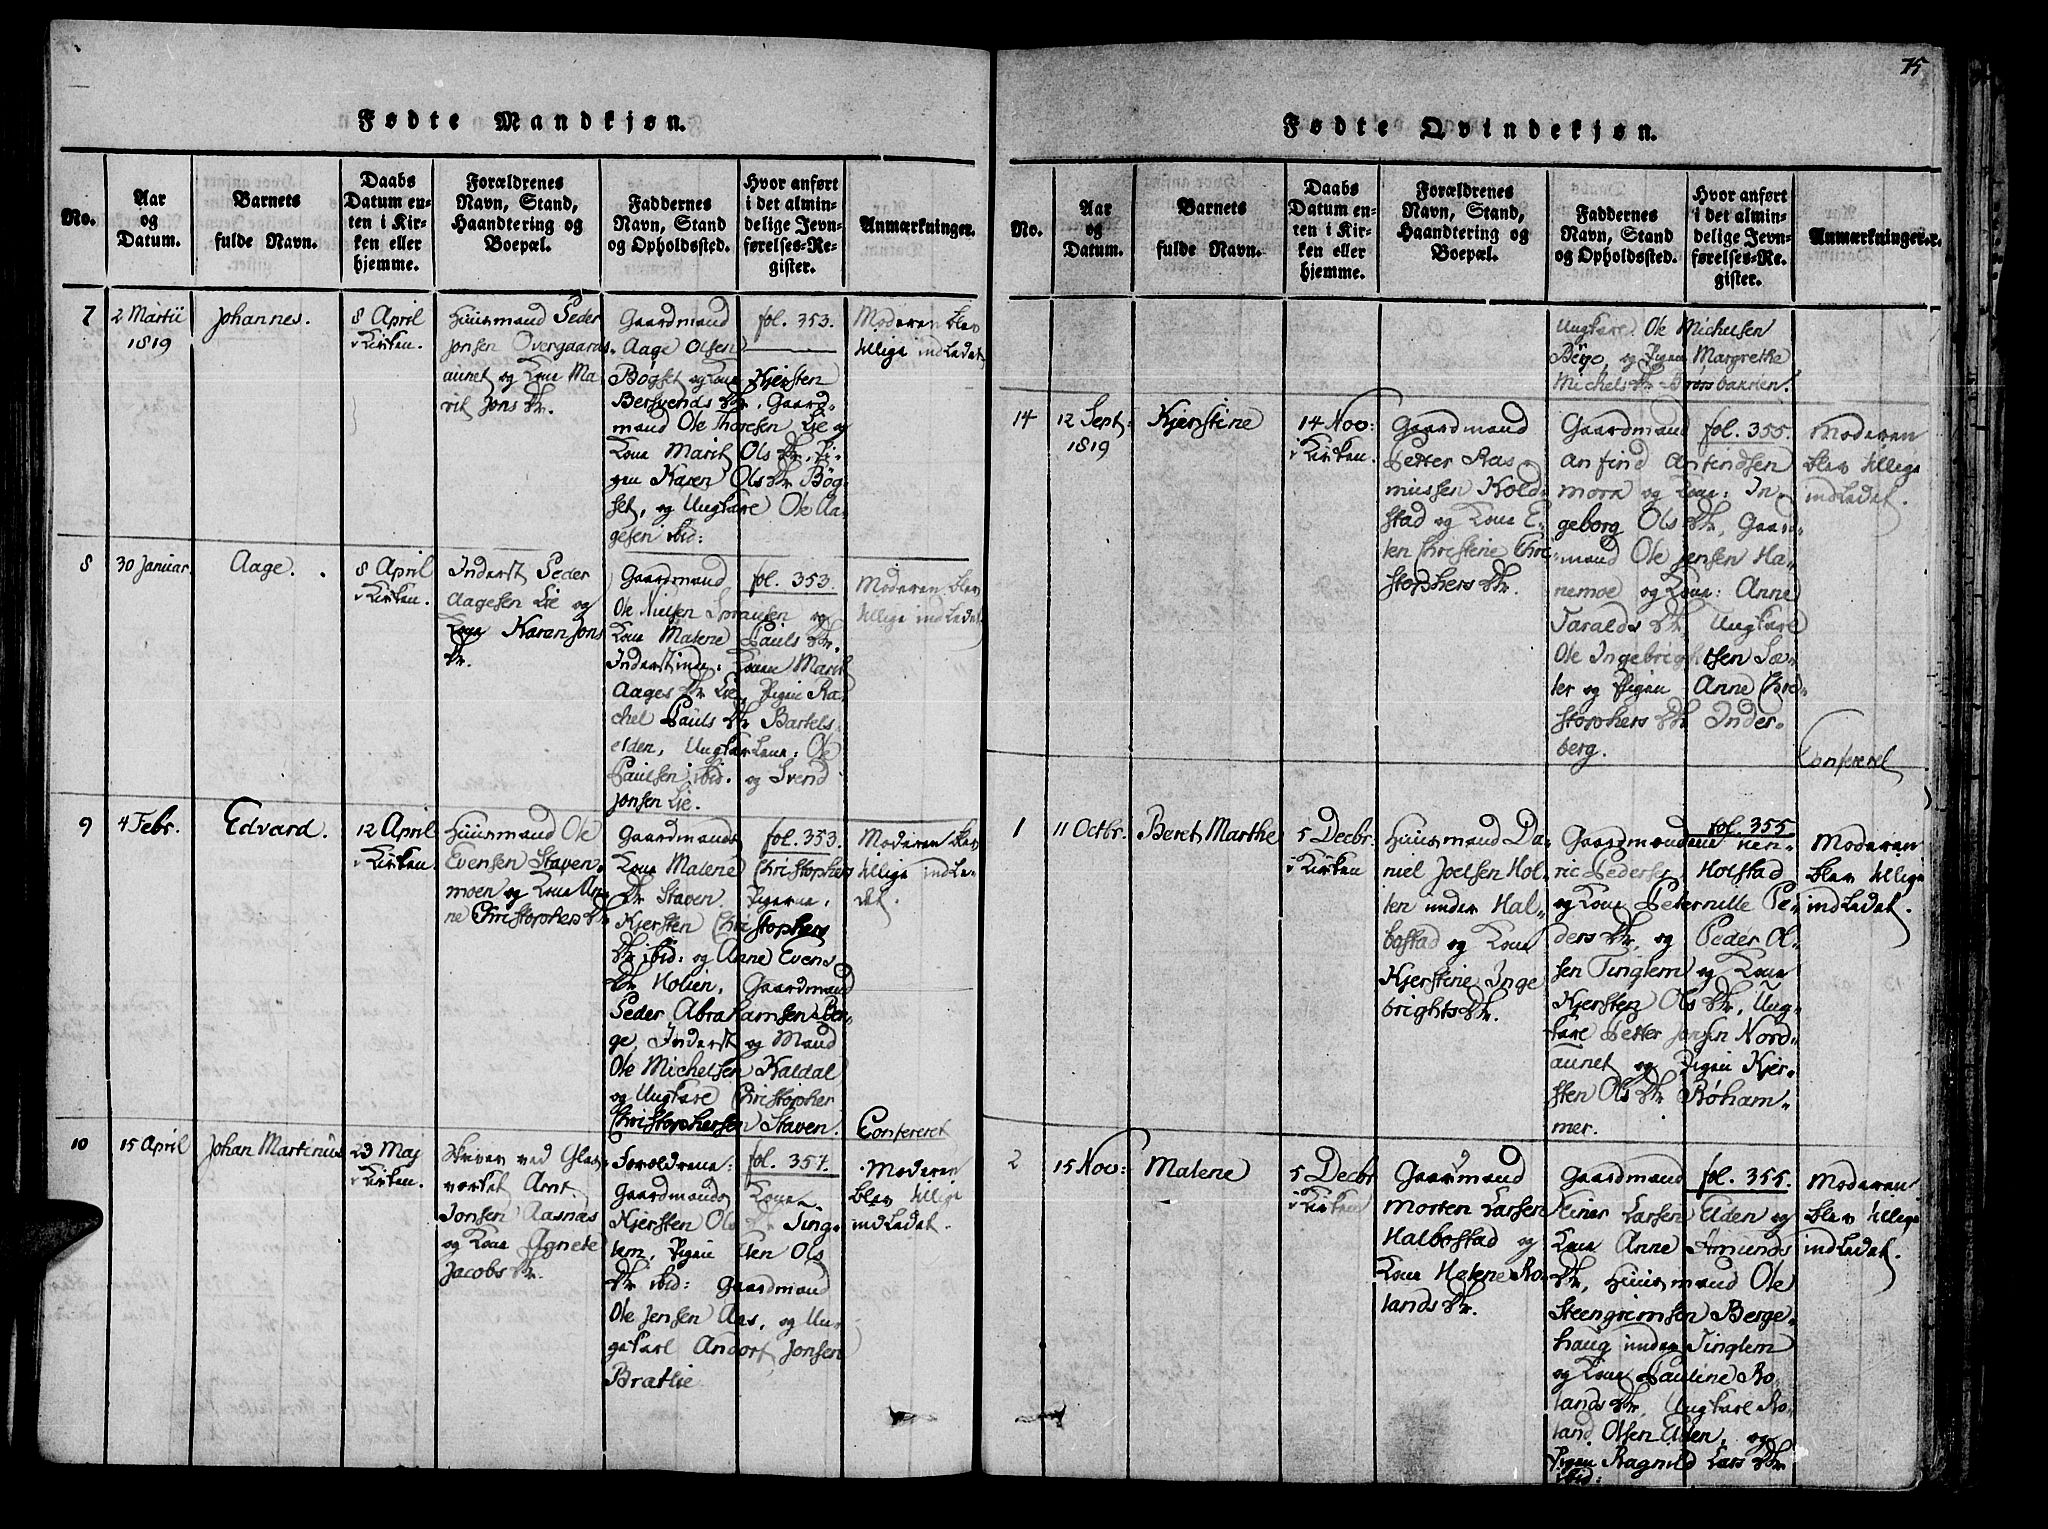 75
Fødte Mandkjøn.
No.
Aar
og
Datum.
Barnets
fulde Navn.
Daabs
Datum en-
ten i Kir-
ken eller
hjemme.
Forældrenes
Navn, Stand,
Haandtering og
Boepæl.
Faddernes
Navn, Stand
og Opholdssted.
Hvor anført
i det almin-
delige Jevn-
førelses-Re-
gister.
Anmærkninger.
7
2 Martii
1819
Johannes.
8 April
i Kirken.
Huusmand Peder
Jonsen Overgaards-
aunet og Kone Ma-
rit Jons Dr.
Gaardmand
Aage Olsen
Bøgset og Kone Kjersten
Bersvends Dr, Gaard-
mand Ole Thoresen Lie og
Kone Marit Ols Dr, Pi-
gen Karen Ols Dr Bøg-
set, og Ungkarl Ole Aa-
gesen ibid:
fol. 353.
Moderen blev
tillige indledet
8
30 Januar.
Aage.
8 April
i Kirken.
Inderst Peder
Aagesen Lie og
Kone Karen Jons
Dr.
Gaardmand
Ole Nielsen Spransen og
Kone Malene Pauls Dr.
Inderstinde: Konen Marit
Aages Dr Lie, Pigen Ra-
chel Pauls Dr Bartels-
elden, Ungkarlene: Ole
Paulsen ibid. og Svend
Jonsen Lie.
fol. 353.
Moderen blev
tillige indledet
9
4 Febr.
Edvard.
12 April
i Kirken.
Huusmand Ole
Evensen Staven-
moen og Kone An-
ne Christophers Dr
Gaardmands
Kone Malene Christophers
Dr Staven. Pigerne,
Kjersten Christophers
Dr ibid: og Anne Evens
Dr Holien, Gaardmand
Peder Abrahamsen Ben-
ge, Inderst og Mand
Ole Michelsen Kaldal
og Ungkarl Christopher
Christophersen Staven.
fol. 353.
Moderen blev
tillige indle-
det.
Confereret
10
15 April
Johan Martinus
23 Maj
i Kirken.
Skriver ved Glas-
værket Arnt
Jonsen Aasnas
og Kone Agnete
Jacobs Dr.
Foroldrene:
Gaardmands Kone
Kjersten Ols Dr Ting-
lem, Pigen Elen Ols
Dr ibid: Gaardmand
Ole Jensen Aas, og Un-
gekarl Andorf Jonsen
Bratlie
fol. 357.
Moderen
blev tillige
indledet.
Fødte Qvindekjøn.
No.
Aar
og
Datum.
Barnets
fulde Navn.
Daabs
Datum en-
ten i Kir-
ken eller
hjemme.
Forældrenes
Navn, Stand,
Haandtering og
Boepæl.
Faddernes
Navn, Stand
og Opholdssted.
Hvor anført
i det almin-
delige Jevn-
førelses-Re-
gister.
Anmærkninger.
Ungkarl Ole Michelsen
Berge, og Pigen Margrethe
Michels Dr Brørsbakken.
14
12 Sept:
1819
Kjerstine
14 Nov:
i Kirken.
Gaardmand
Petter Ras-
mussen Kold-
stad og Kone E-
len Christine Chri-
stophers Dr.
Gaardmand
Anfind Anfindsen
Mora og Kone: In-
geborg Ols Dr, Gaard-
mand Ole Jensen Ha-
nemoe og Kone: Anne
Taralds Dr, Ungkarl
Ole Ingebrigtsen Sæ-
ter og Pigen Anne Chri-
stophers Dr Inder-
berg.
fol. 355.
Moderen
blev tillige
indledet.
Confereret
1
11 Octbr.
Beret Marthe
5 Decbr.
i Kirken
Huusmand Da-
niel Joelsen Hol-
ten under Hal-
bostad og Kone
Kjerstine Inge
brights Dr.
Gaardmændene Hen-
ric Pedersen Holstad
og Kone Peternille Pe-
ders Dr, og Peder Ol-
sen Tinglem og Kone
Kjersten Ols Dr, Ung-
karl Petter Jonsen Nord-
aunet og Pigen Kjer-
sten Ols Dr Røham-
mer.
fol. 355
Moderen
blev tillige
indledet.
2
15 Nov:
Malene
5 Decbr
i Kirken
Gaardmand
Morten Larsen
Halbostad og
Kone Helene Ro-
lands Dr.
Gaardmand
Einer Larsen Elden og
Kone Anne Amunds
Dr, Huusmand Ole
Steengrimsen Berge-
haug under Tinglem
og Kone Pauline Ro-
lands Dr, Ungkarl Ro-
land Olsen Elden, og
Pigen Ragnild Lars Dr
ibid:
fol. 355.
Moderen
blev tillige
indledet.